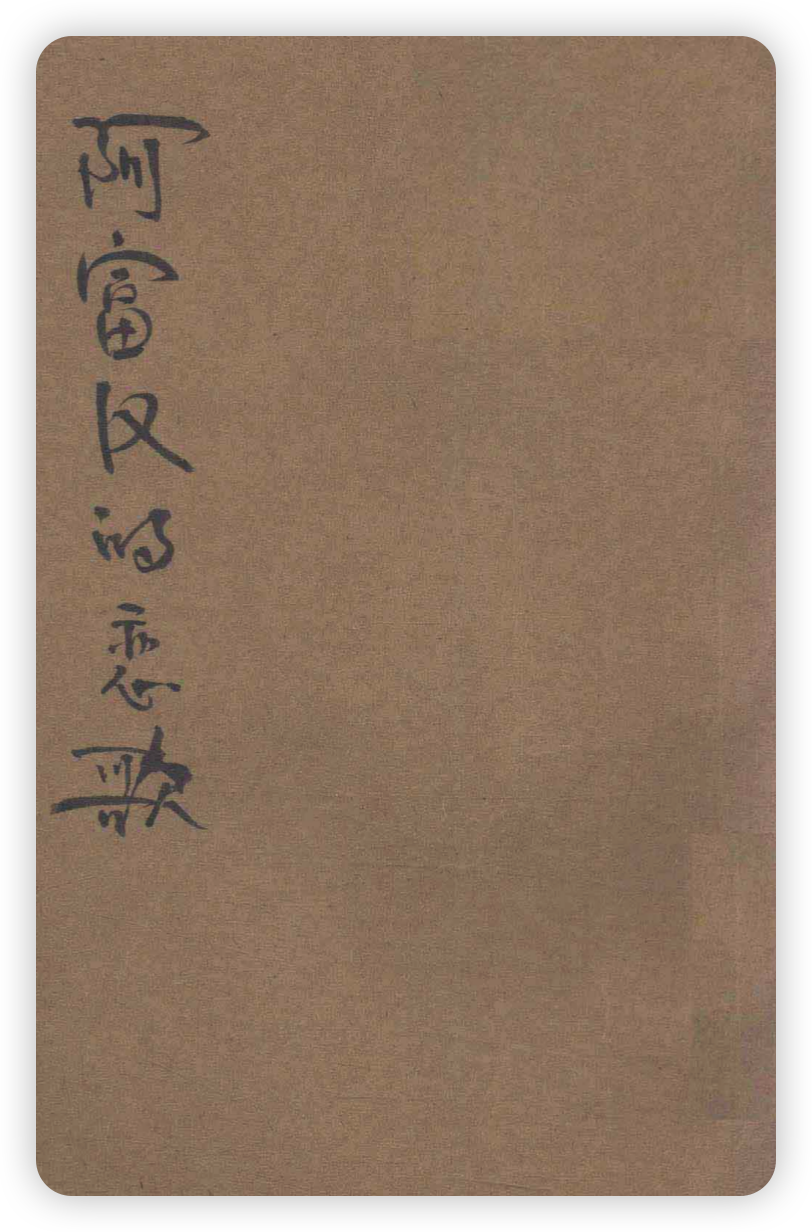 阿富汗的恋歌